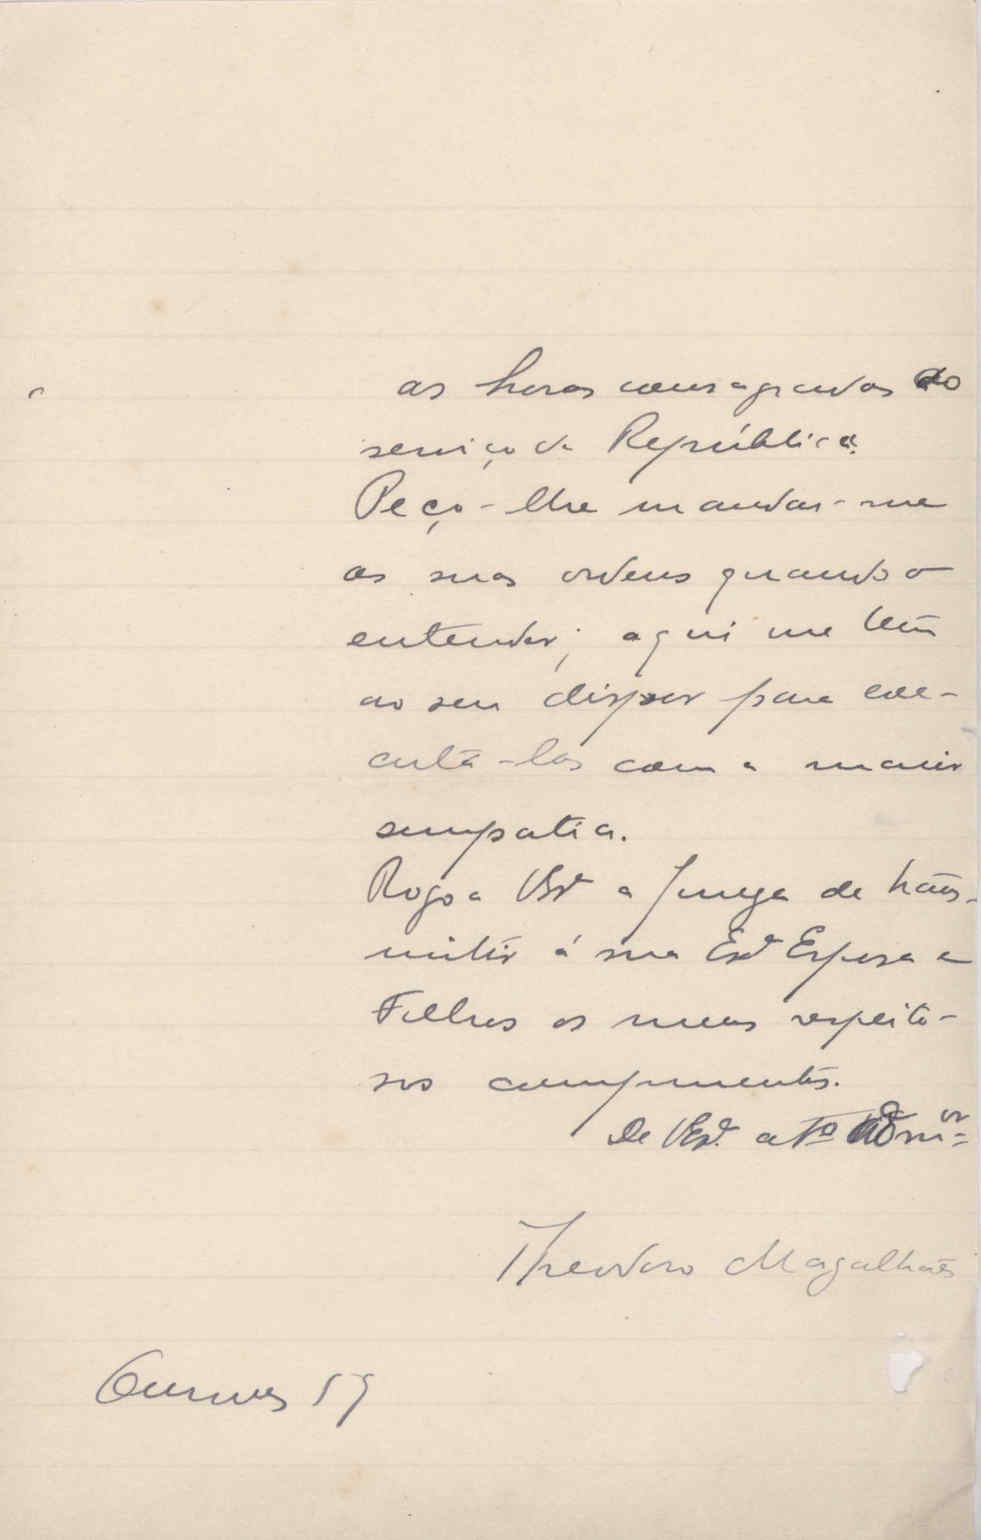 as horas consagradas ao
serviço da República.
Peço-lhe mandar-me
as suas ordens quando o
entender; aqui me tem
ao seu dispor para exe-
cutá-las com a maior
simpatia.
Rogo a VEx.ª a fineza de trans-
mitir á sua Ex.ª Esposa e
Filhos os meus respeito-
sos cumprimentos.
De VEx.ª at.º
Theodoro Magalhães
59